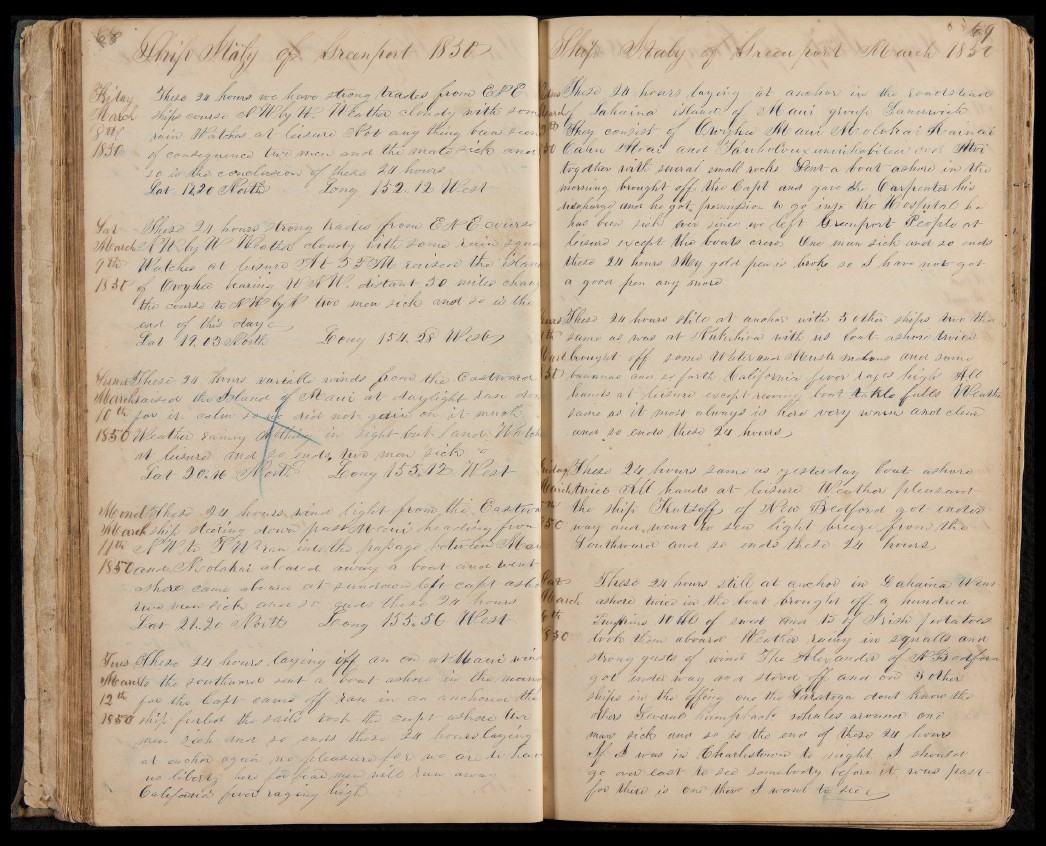 68
Ship Italy of Greenport 1850
Friday These 24 hours we have strong trades from ENE
March ships course NW by W. Weather cloudy with some
8th rain Watches at leisure Not any thing been seen
1850 of consequence two men and the mate sick and
so is the conclusion of these 24 hours
Lat 18.20 North Long 152.12 West
Sat These 24 hours strong trades from ENE course
March NW by W Weather cloudy with some rain squalls
9th Watches at leisure At 5 PM raised the island
1850 of Owyhee bearing WNW. distant 50 miles
the course to NW by N two men sick and so is the
end of this day
Lat 19.03 North Long 154.28 West
These 24 hours variable winds from the Eastward
March raised the Island of Maui at daylight
10th for it calm so we did not gain on it much
1850 Weather sunny Nothing in sight but land Watches
at leisure and so ends two men sick
Lat 20.16 North Long 155.12 West
Mond These 24 hours wind light from the Eastward
March ship steering down past Maui heading from
11th NW to SW ran into the passage between Maui
1850 and Molokai cleared away a boat and went
ashore came aboard at sundown left capt ashore
two men sick and so ends these 24 hours
Lat 21.20 North Long 155.56 West
Tues These 24 hours laying off an on at Maui wind
March to the southward sent a boat ashore in the morning
12th for the Capt came off ran in an anchored the
1850 ship furled the sails took the capt ashore two
men sick and so ends these 24 hours laying
at anchor again no pleasure for we are to have
no liberty here for fear men will run away
California fever raging high
69
Ship Italy of Greenport March 1850
These 24 hours laying at anchor in the roadstead
of Lahaina island of Maui group Sandwich
They consist of Owyhee Maui Molokai Ranai
Oahu and Tauhoorowe uninhabited and Atoi
together with several small rocks Sent a boat ashore in the
morning brought off the Capt and gave the Carpenter his
discharge and he got permission to go into the Hospital he
has been sick ever since we left Greenport People at
leisure except the boats crew One man sick and so ends
these 24 hours My gold pen is broke so I have not got
a good pen any more
These 24 hours still at anchor with 3 other ships two the
same as was at with us boat ashore twice
brought off some Water and Musk melons and some
bananas and so forth California fever rages high All
hands at leisure except reeving boat tackle falls Weather
same as it most always is here very warm and clear
and so ends these 24 hours
Friday These 24 hours same as yesterday boat ashore
March twice All hands at leisure Weather pleasant
the ship Kutsoff of New Bedford got under
1850 way and went to sea light breeze from the
Southward and so ends these 24 hours
These 24 hours still at anchor in Lahaina Went
March ashore twice in the boat brought off a hundred
Pumpkins 10 bbls of sweet and 15 of Irish potatoes
1850 took them aboard Weather rainy in squalls and
strong gusts of wind The Alexander of N Bedford
got under way and stood off and on 3 other
ships in the offing one the Saratoga dont know the
others Several humpback whales around one
man sick and so is the end of these 24 hours
If I was in Charlestown to night I should
go over east to see somebody before it was past
for there is one there I want to see